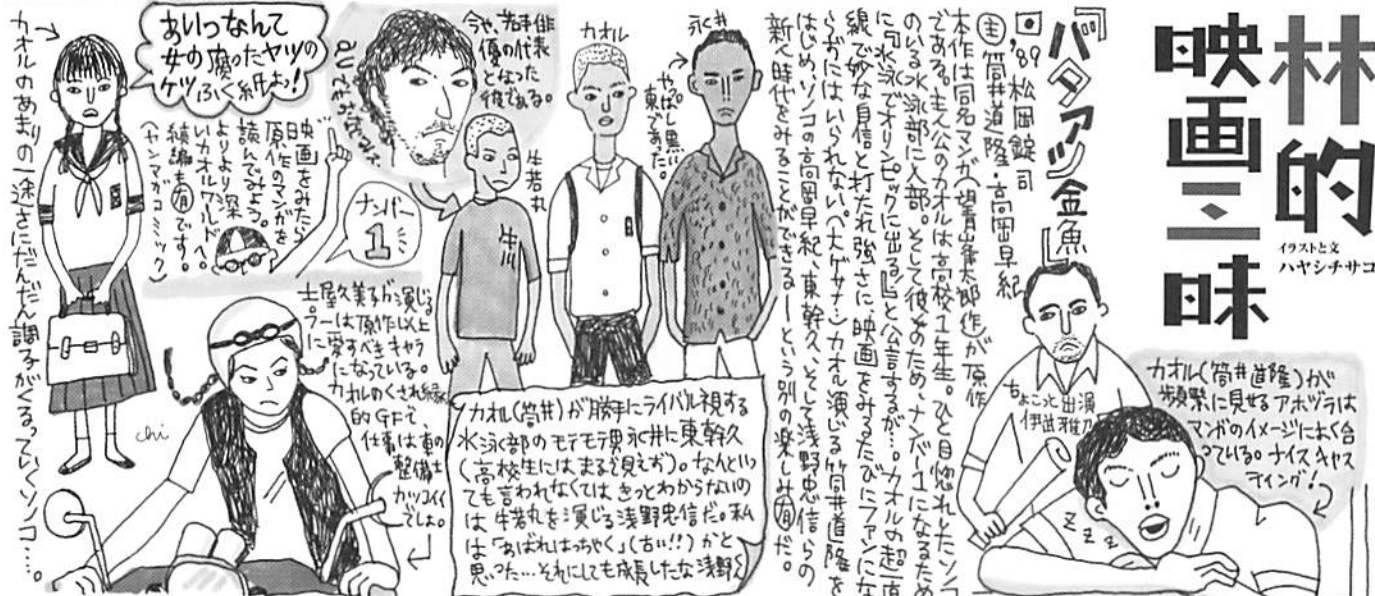 林的
映画三昧
イラストと文
ハヤシチサコ
『バタアシ金魚』
'89 松岡錠司
主 筒井道隆・高岡早紀
本作は同名マンガ(望月峯太郎作)が原作
である。主人公のカオルは高校1年生。ひと目惚れしたソノコ
のいる水泳部に入部。そして彼女のため、ナンバー1になるため
に『水泳でオリンピックに出る』と公言するが…。カオルの超一直
線で妙な自信と打たれ強さに、映画をみるたびにファンにな
らずにはいられない。(大ゲサナ…)カオル演じる筒井道隆を
はじめ、ソノコの高岡早紀、東幹久、そして浅野忠信らの
新人時代をみることができる―という別の楽しみ有だ。
カオル(筒井道隆)が
頻繁に見せるアホヅラは
マンガのイメージによく合
っている。ナイスキャス
ティング!
ちょこっと出演
伊武雅刀
ZZZ
永井
やっぱし黒い
東であった。
カオル
牛若丸
牛川
今や、若手俳
優の代表
となった
彼である。
ナンバー
1
カオル(筒井)が勝手にライバル視する
水泳部のモテモテ男永井に東幹久
(高校生にはまるで見えず)。なんといっ
ても言われなくてはきっとわからないの
は牛若丸を演じる浅野忠信だ。私
は「あばれはっちゃく」(古い!!)かと
思った…それにしても成長したな浅野くん
映画をみたら
原作のマンガを
読んでみよう。
よりより深
いカオルワールドへ。
続編も有です。
(ヤンマガコミック)
土屋久美子が演じる
プーは原作以上
に愛すべきキャラ
になっている。
カオルのくされ縁
的GFで、
仕事は車の
整備士
カッコイイ
でしょ。
あいつなんて
女の腐ったヤツの
ケツふく紙よっ!
カオルのあまりの一途さにだんだん調子がくるっていくソノコ……。
chi